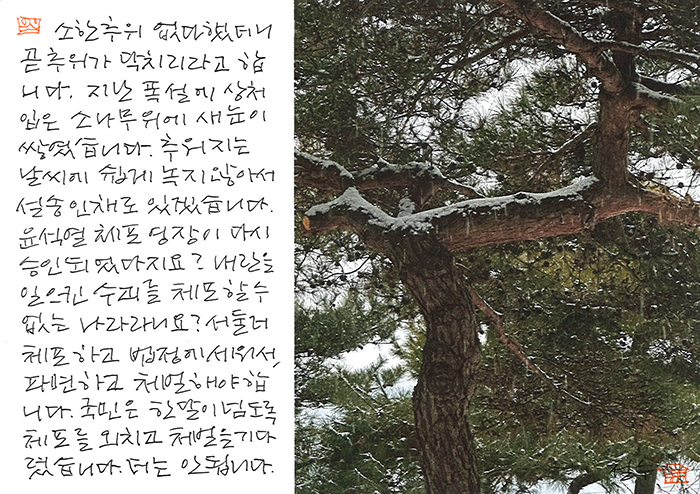 소한추위 없다했더니
곧 추위가 닥치리라고 합
니다. 지난 폭설에 상처
입은 소나무위에 새눈이
쌓였습니다. 추워지는
날씨에 쉽게 녹지않아서
설송인채로 있겠습니다.
윤석열 체포영장이 다시
승인되었다지요? 내란을
일으킨 수괴를 체포할수
없는 나라라니요? 서둘러
체포하고 법정에세워서,
파면하고 처벌해야합
니다. 국민은 한달이넘도록
체포를 외치고 처벌을기다
렸습니다. 더는 안됩니다.